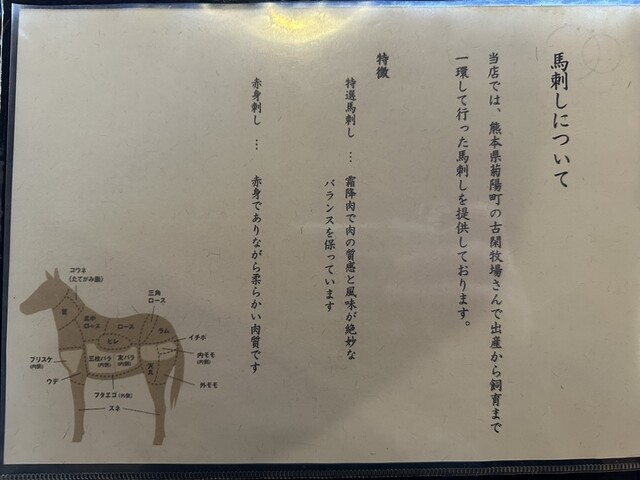 馬刺しについて
当店では、熊本県菊陽町の古閑牧場さんで出産から飼育まで
一環して行った馬刺しを提供しております。
特徴
特選馬刺し … 霜降肉で肉の質感と風味が絶妙な
バランスを保っています
赤身刺し … 赤身でありながら柔らかい肉質です
コウネ
(たてがみ脂)
三角
ロース
首
肩中
ロース
ロース
ヒレ
ラム
イチボ
ブリスケ
(内側)
三枚バラ
(内側)
友バラ
(内側)
内モモ
(内側)
ウデ
フタエゴ(外側)
外モモ
スネ